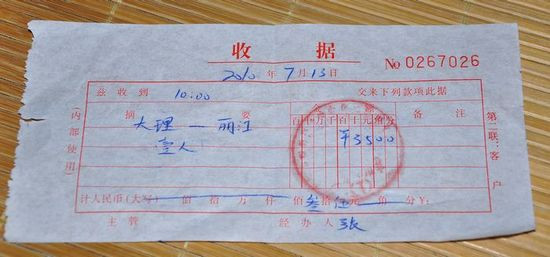 收据
2010年7月13日 No 0267026
兹收到 10:00 交来下列款项此据
摘要 百十万千百十元角分 备注
大理—丽江 ¥3500
壹人
计人民币(大写) 佰拾万仟佰叁拾伍元角分¥:
主管 经办人 张
(内部使用)
第二联:客户